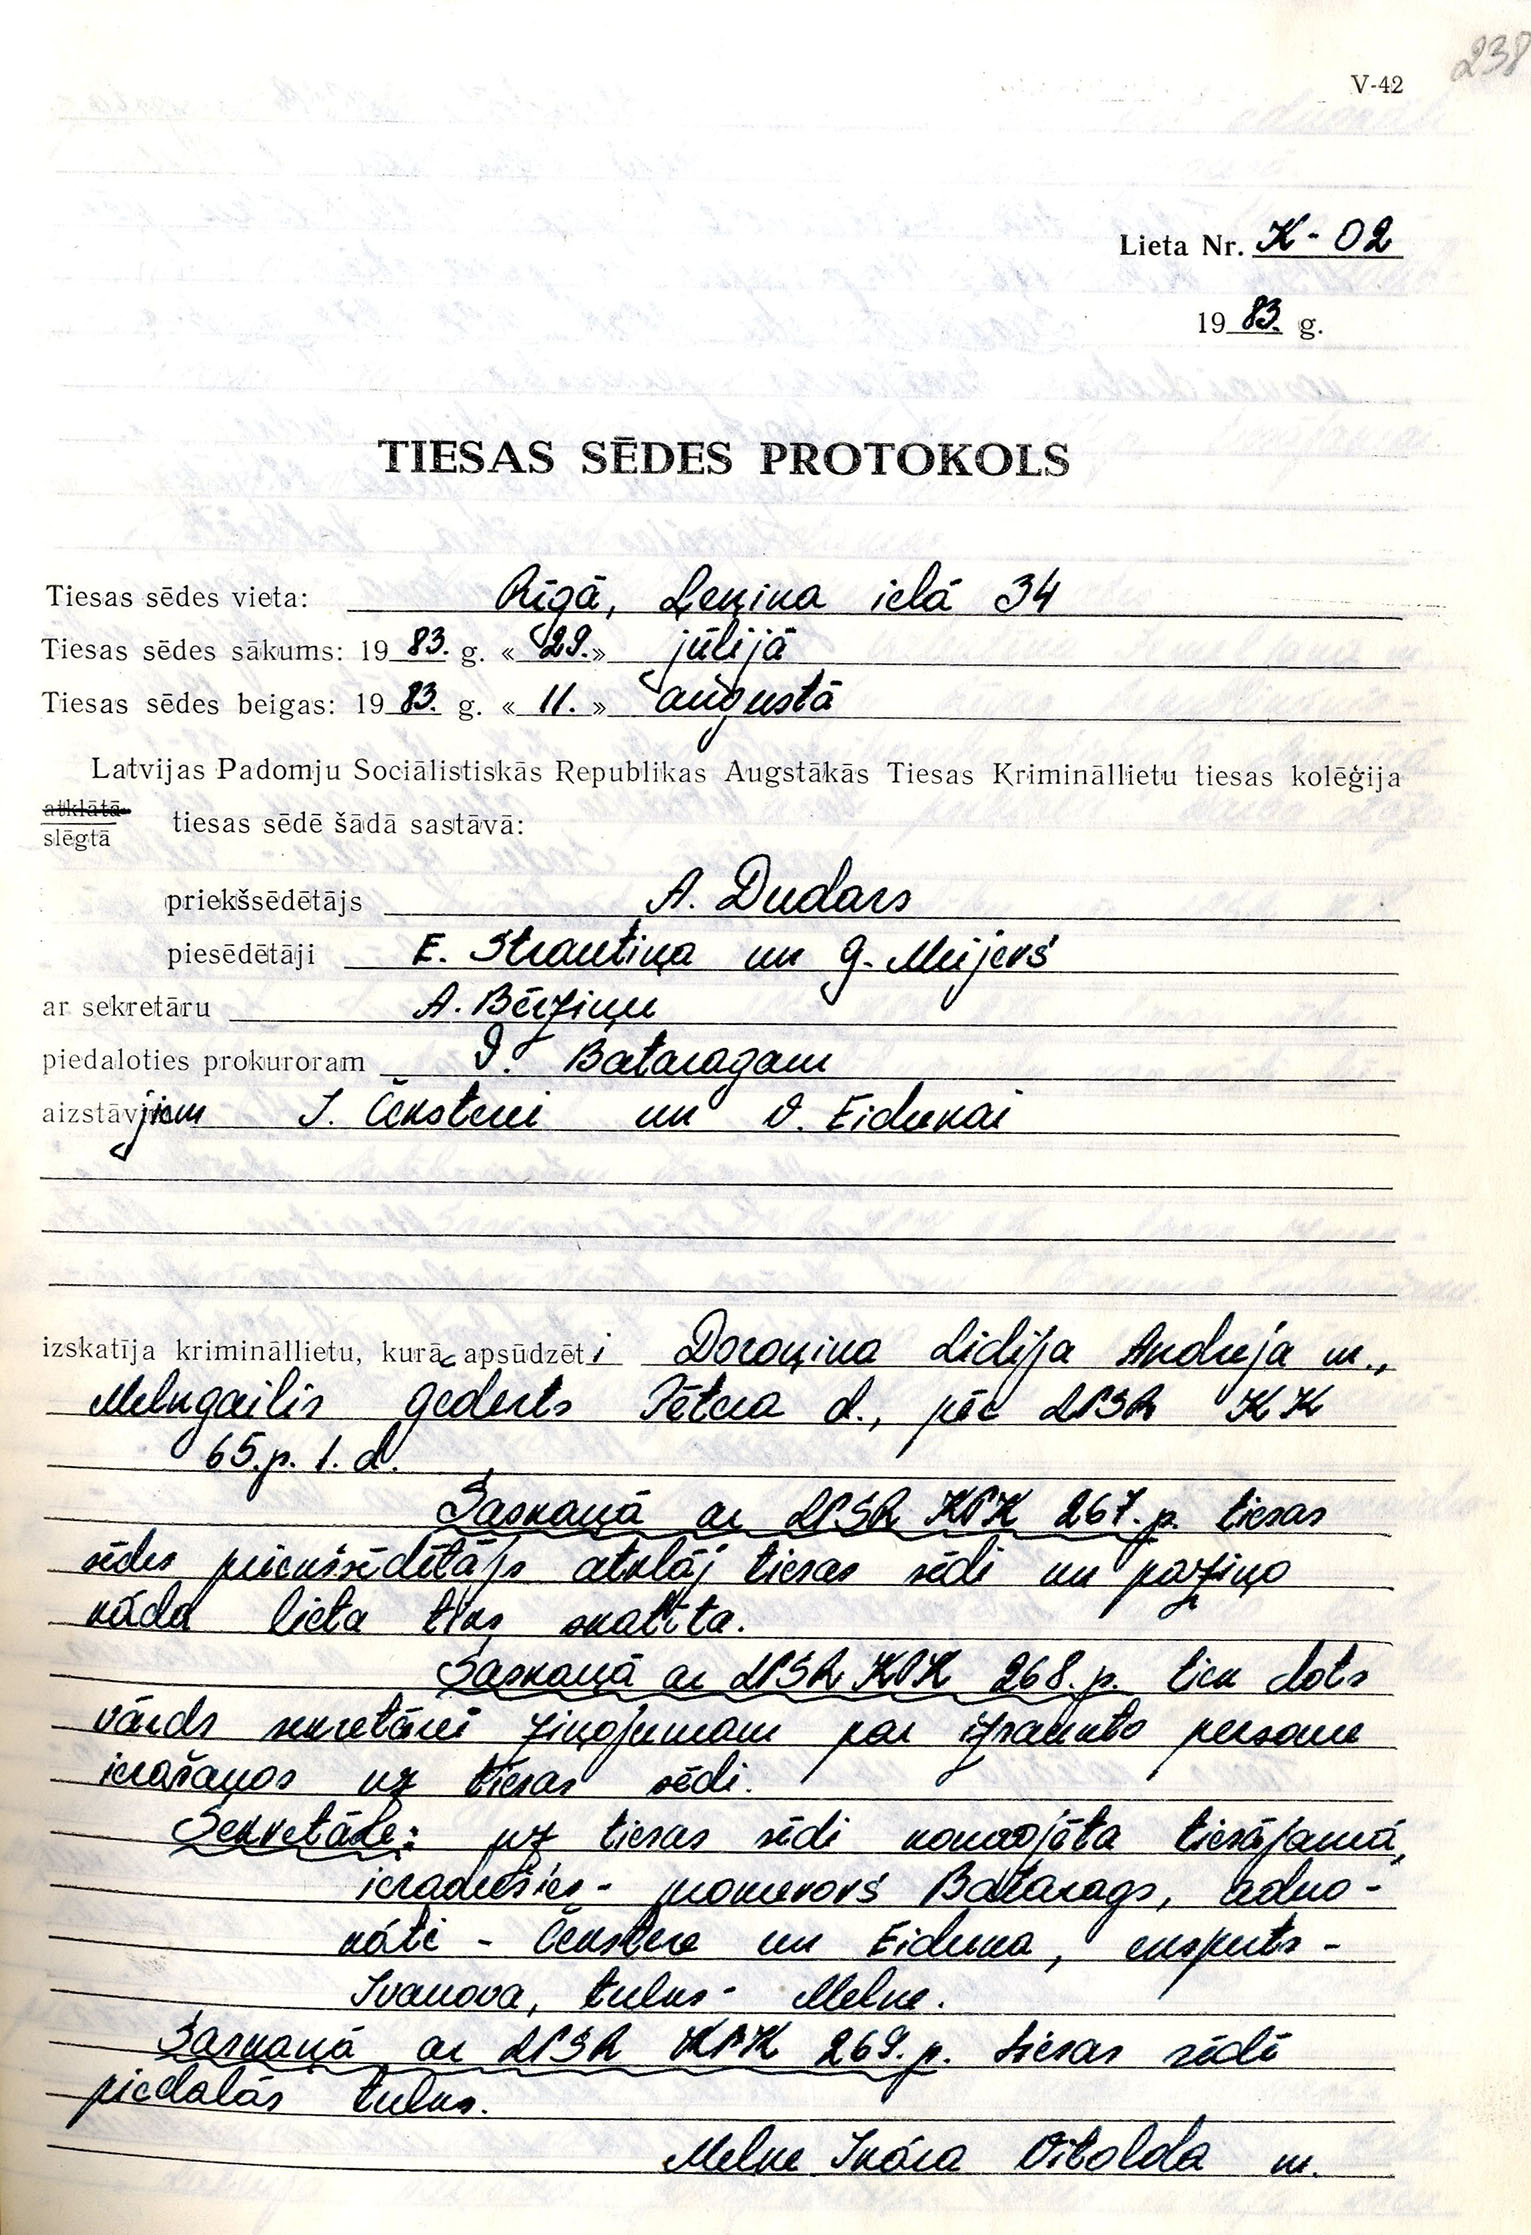 238
V-42
Lieta Nr. K-02
1983. g.
TIESAS SĒDES PROTOKOLS
Tiesas sēdes vieta: Rīgā, Ļeņina ielā 34
Tiesas sēdes sākums: 1983. g. «29.» jūlijā
Tiesas sēdes beigas: 1983. g. «11.» augustā
Latvijas Padomju Sociālistiskās Republikas Augstākās Tiesas Krimināllietu tiesas kolēģija
atklātā
slēgtā tiesas sēdē šādā sastāvā:
priekšsēdētājs A. Dudars
piesēdētāji E. Strautiņa un G. Meijerš
ar sekretāru A. Bērziņu
piedaloties prokuroram I. Bataragam
aizstāvjiem I. Čekstere un V. Eidukai
izskatīja krimināllietu, kurā apsūdzēti Doroņina Lidija Andreja m.,
Melngailis Gederts Pētera d., pēc LPSR KK
65.p. 1. d.
Saskaņā ar LPSR KPK 267. p. tiesas
sēdes priekšsēdētājs atklāj tiesas sēdi un paziņo
kāda lieta tiks skatīta.
Saskaņā ar LPSR KPK 268. p. tiek dots
vārds sekretārei ziņojumam par izsaukto personu
ierašanos uz tiesas sēdi.
Sekretāre: uz tiesas sēdi konvojēta tiesājamā,
ieradušies - prokurors Batarags, advo-
kāti - Čekstere un Eiduka, eksperts -
Ivanova, tulks - Melne.
Saskaņā ar LPSR KPK 269. p. tiesas sēdē
piedalās tulks.
Melne Ināra Vitolda m.